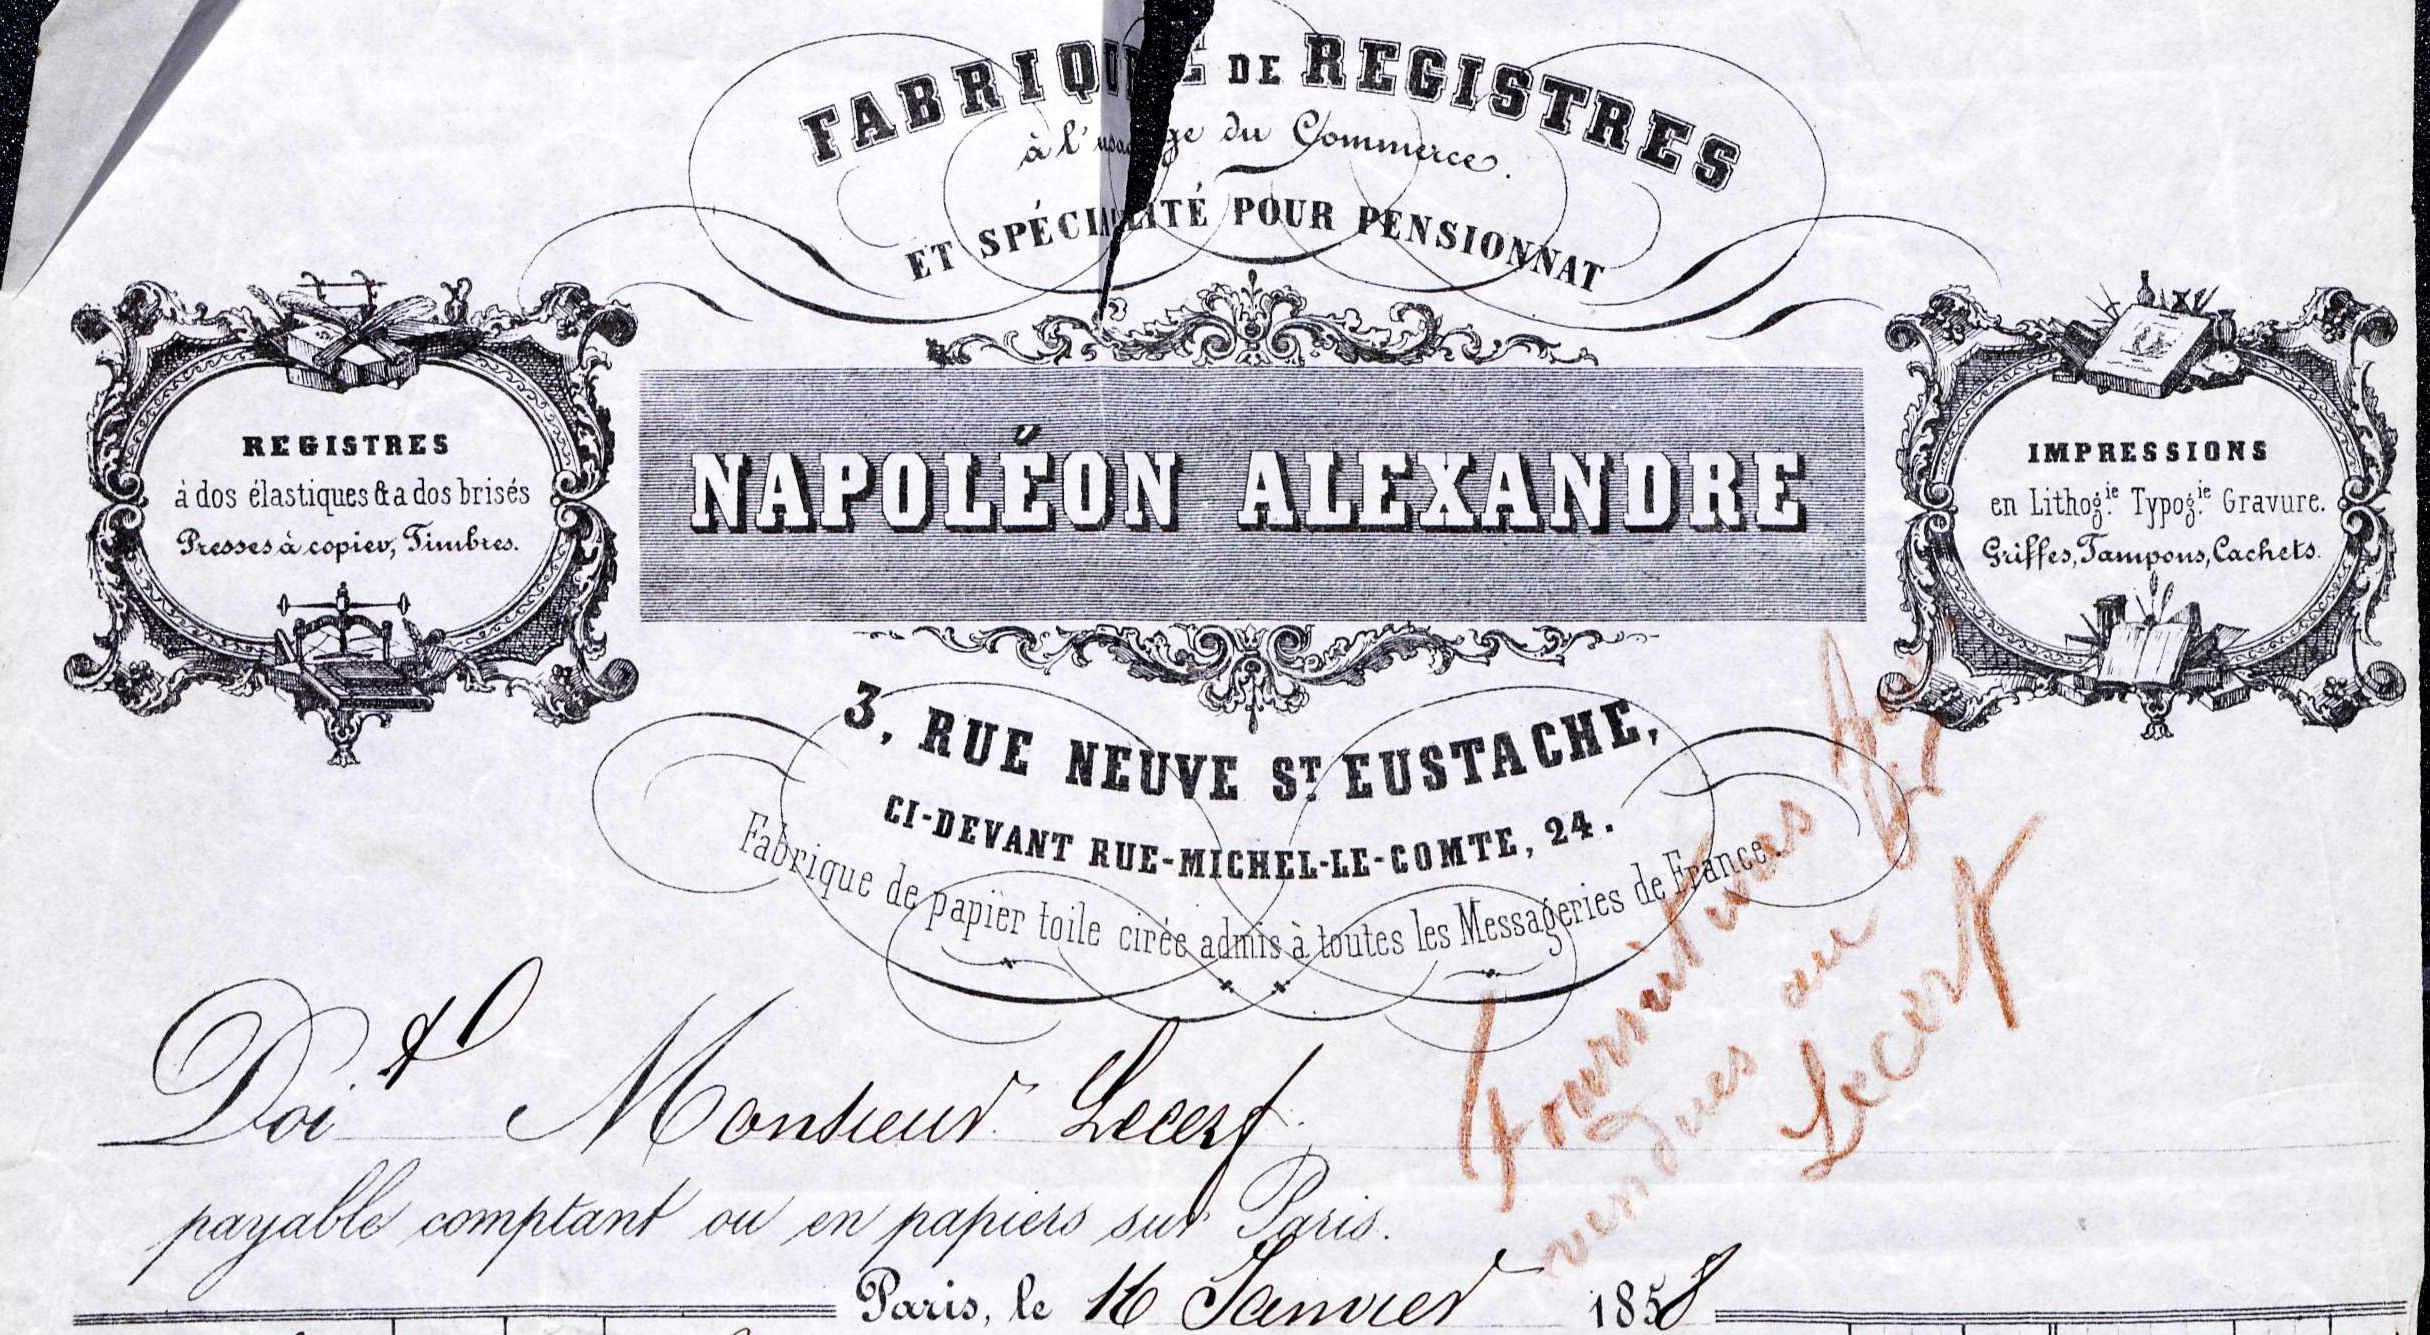 FABRIQUE DE REGISTRES
à l'usage du Commerce.
ET SPÉCIALITÉ POUR PENSIONNAT
REGISTRES
à dos élastiques & a dos brisés
Presses à copier, Timbres.
NAPOLÉON ALEXANDRE
IMPRESSIONS
en Lithog.ie Typog.ie Gravure.
Griffes, Tampons, Cachets.
3, RUE NEUVE ST. EUSTACHE,
CI-DEVANT RUE-MICHEL-LE-COMTE, 24.
Fabrique de papier toile cirée admis à toutes les Messageries de France.
Doit Monsieur Lecerf
payable comptant ou en papiers sur Paris.
Paris, le 16 Janvier 1858
fournitures
vendues au
Lecerf